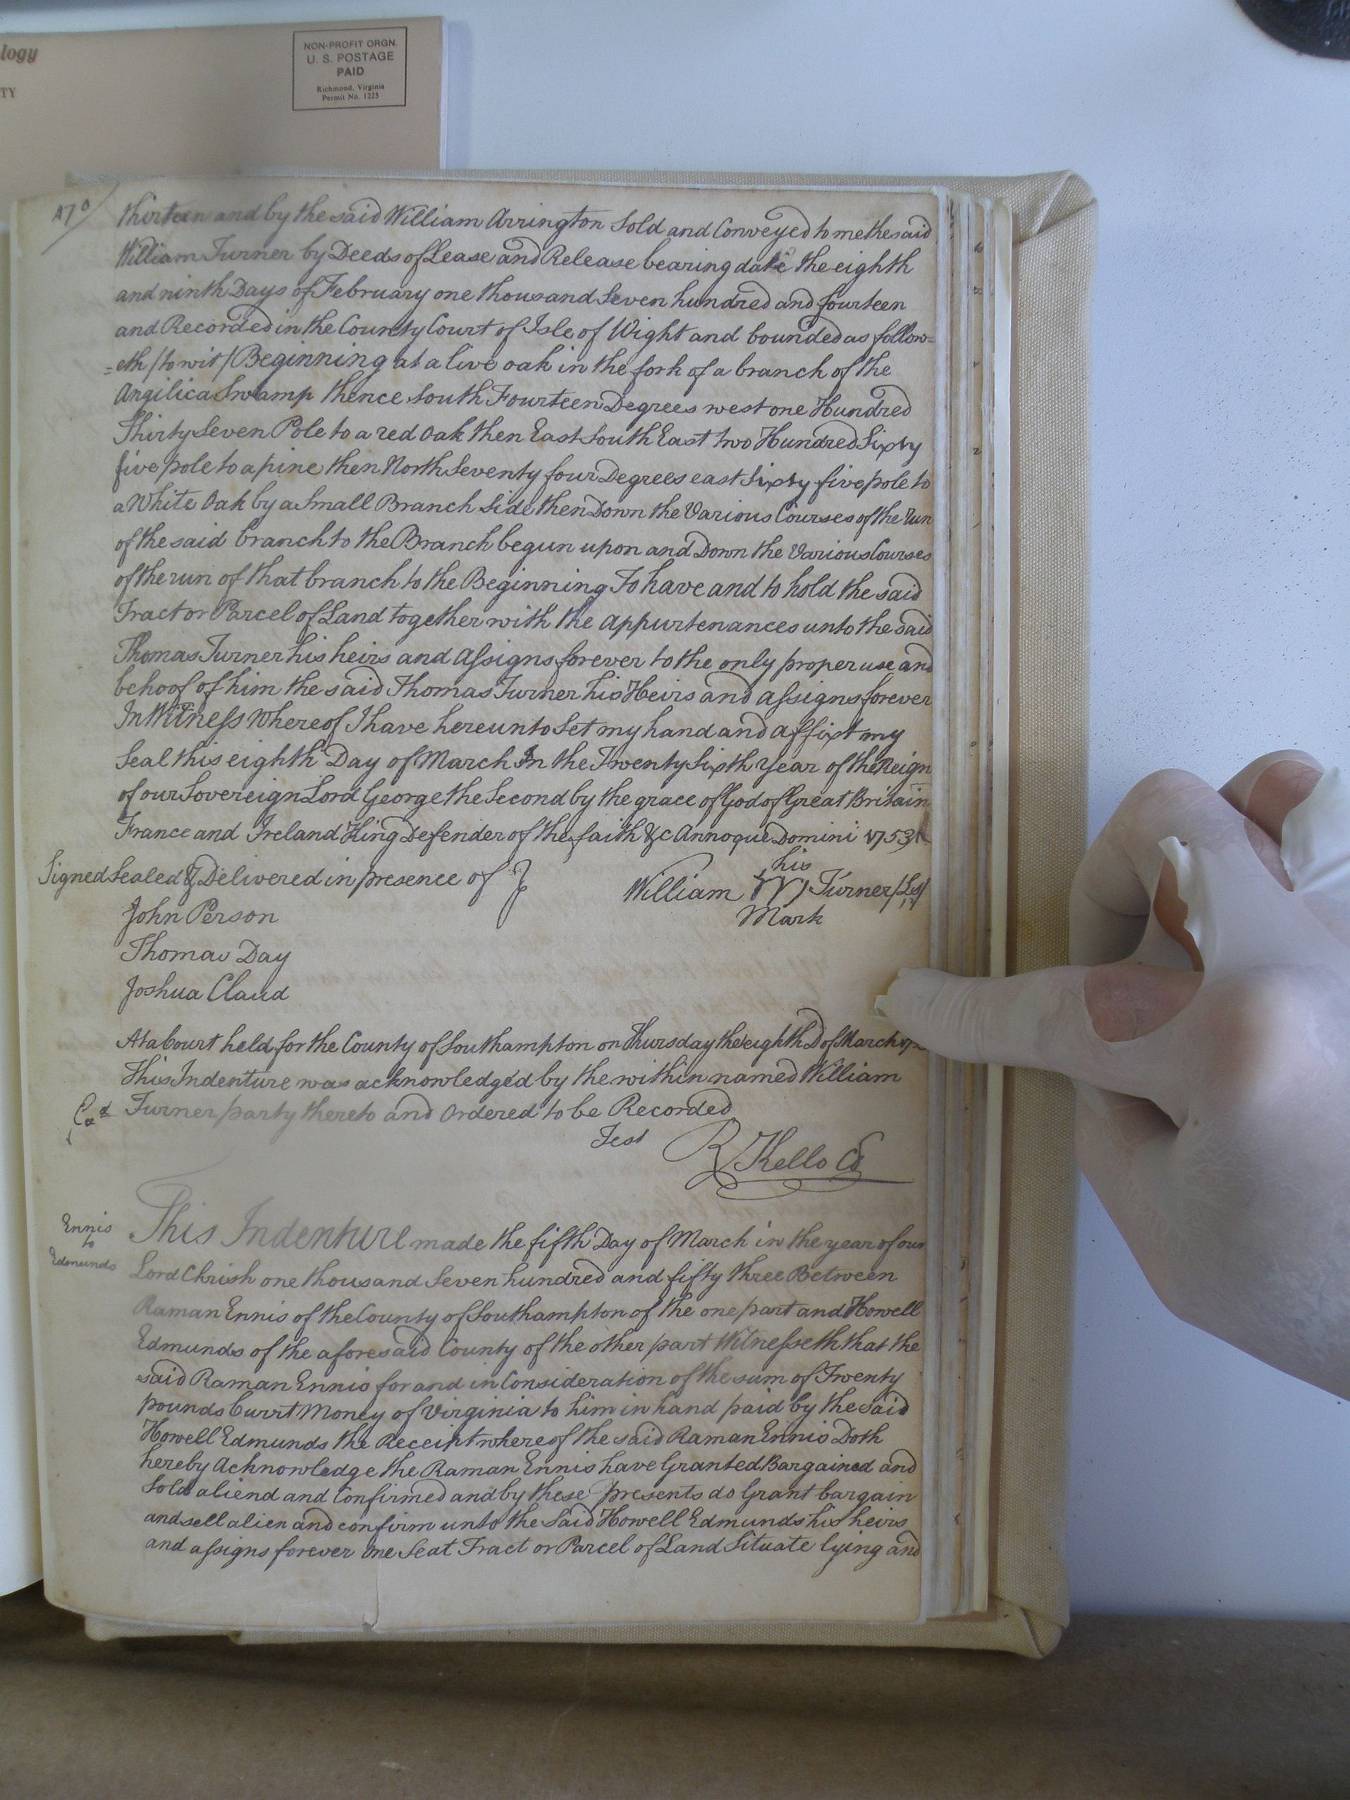 logy
TY
NON-PROFIT ORGN.
U. S. POSTAGE
PAID
Richmond, Virginia
Permit No. 1225
470
thirteen and by the said William Arrington Sold and Conveyed to me the said
William Turner by Deeds of Lease and Release bearing date the eighth
and ninth Days of February one thousand Seven hundred and fourteen
and Recorded in the County Court of Isle of Wight and bounded as follow=
=eth /to wit/ Beginning at a live oak in the fork of a branch of the
Angilica Swamp thence South Fourteen Degrees west one Hundred
Thirty Seven Pole to a red Oak then East South East two Hundred Sixty
five pole to a pine then North Seventy four Degrees east Sixty five pole to
a White Oak by a Small Branch Side then Down the Various Courses of the run
of the said branch to the Branch begun upon and Down the Various Courses
of the run of that branch to the Beginning To have and to hold the said
Tract or Parcel of Land together with the appurtenances unto the said
Thomas Turner his heirs and assigns forever to the only proper use and
behoof of him the said Thomas Turner his Heirs and assigns forever
In Witness Whereof I have hereunto Set my hand and affixt my
Seal this eighth Day of March In the Twenty Sixth Year of the Reign
of our Sovereign Lord George the Second by the grace of God of Great Britain
France and Ireland King Defender of the faith &c Annoque Domini 1753
Signed Sealed & Delivered in presence of
his
William W Turner /Ls/
Mark
John Person
Thomas Day
Joshua Claud
At a Court held for the County of Southampton on Thursday the eighth D of March
This Indenture was acknowledged by the within named William
Turner party thereto and Ordered to be Recorded
Exd
Test
R Kello Cl
Ennis
to
Edmunds
This Indenture made the fifth Day of March in the year of our
Lord Christ one thousand Seven hundred and fifty three Between
Raman Ennis of the County of Southampton of the one part and Howell
Edmunds of the aforesaid County of the other part Witnesseth that the
said Raman Ennis for and in Consideration of the sum of Twenty
pounds Currt Money of Virginia to him in hand paid by the Said
Howell Edmunds the Receipt whereof the said Raman Ennis Doth
hereby Acknowledge the Raman Ennis have Granted Bargained and
Sold aliend and Confirmed and by these presents do Grant bargain
and sell alien and confirm unto the Said Howell Edmunds his heirs
and assigns forever one Seat Tract or Parcel of Land Situate lying and